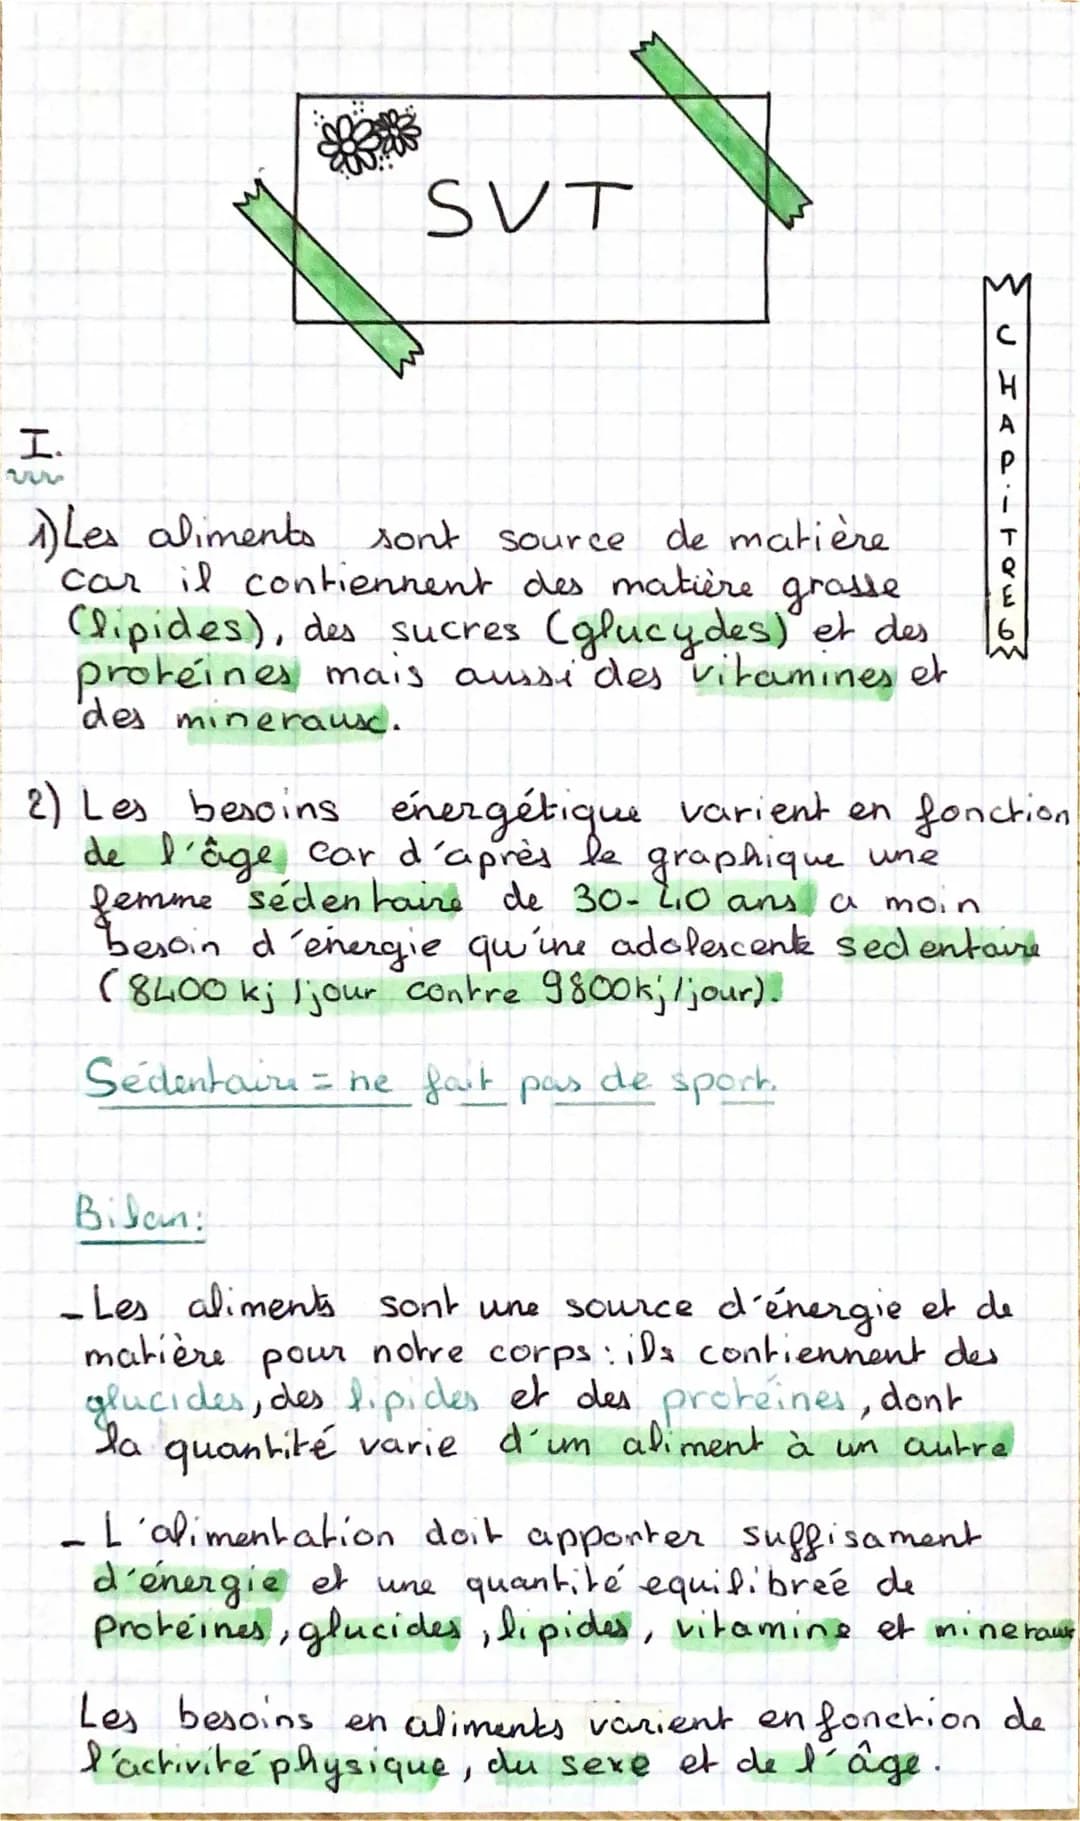 SVT
CHAPITRE 6
I.
1) Les aliments sont source de matière
car il contiennent des matière grasse
(lipides), des sucres (glucydes) et des
protéines mais aussi des vitamines et
des mineraux.
2) Les besoins énergétique varient en fonction
de l'âge car d'après le graphique une
femme sédentaire de 30-40 ans a moin
besoin d'énergie qu'une adolescente sedentaire
(8400 kj/jour contre 9800kj/jour).
Sédentaire = ne fait pas de sport.
Bilan:
- Les aliments sont une source d'énergie et de
matière pour notre corps : ils contiennent des
glucides, des lipides et des protéines, dont
la quantité varie d'un aliment à un autre
- L'alimentation doit apporter suffisament
d'énergie et une quantité equilibreé de
Protéines, glucides, lipides, vitamine et mineraux
Les besoins en aliments varient en fonction de
l'activité physique, du sexe et de l'âge.